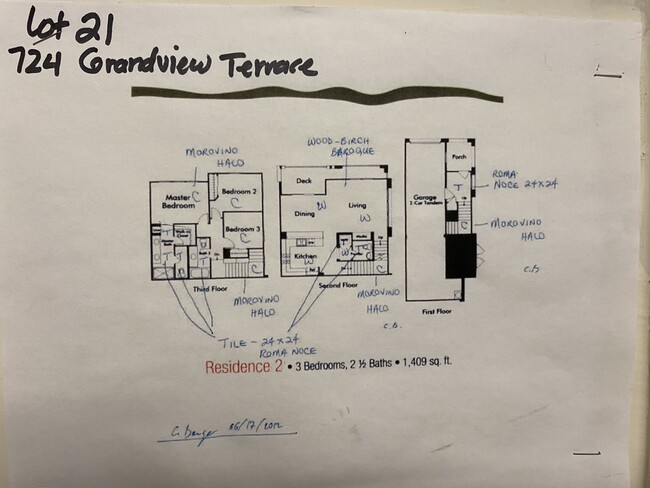 Lot 21
724 Grandview Terrace
MOROVINO
HALO
WOOD-BIRCH
BAROQUE
Master
Bedroom
C
Bedroom 2
C
Bedroom 3
C
C
T
T
T
Third Floor
MOROVINO
HALO
Deck
Dining
Living
W
W
Kitchen
W
W
T
C
Second Floor
MOROVINO
HALO
C.B.
Porch
Garage
2-Car Tandem
T
C
ROMA
NOCE 24X24
MOROVINO
HALO
C.B
First Floor
TILE - 24X24
ROMA NOCE
Residence 2 • 3 Bedrooms, 2 ½ Baths • 1,409 sq. ft.
06/17/2012